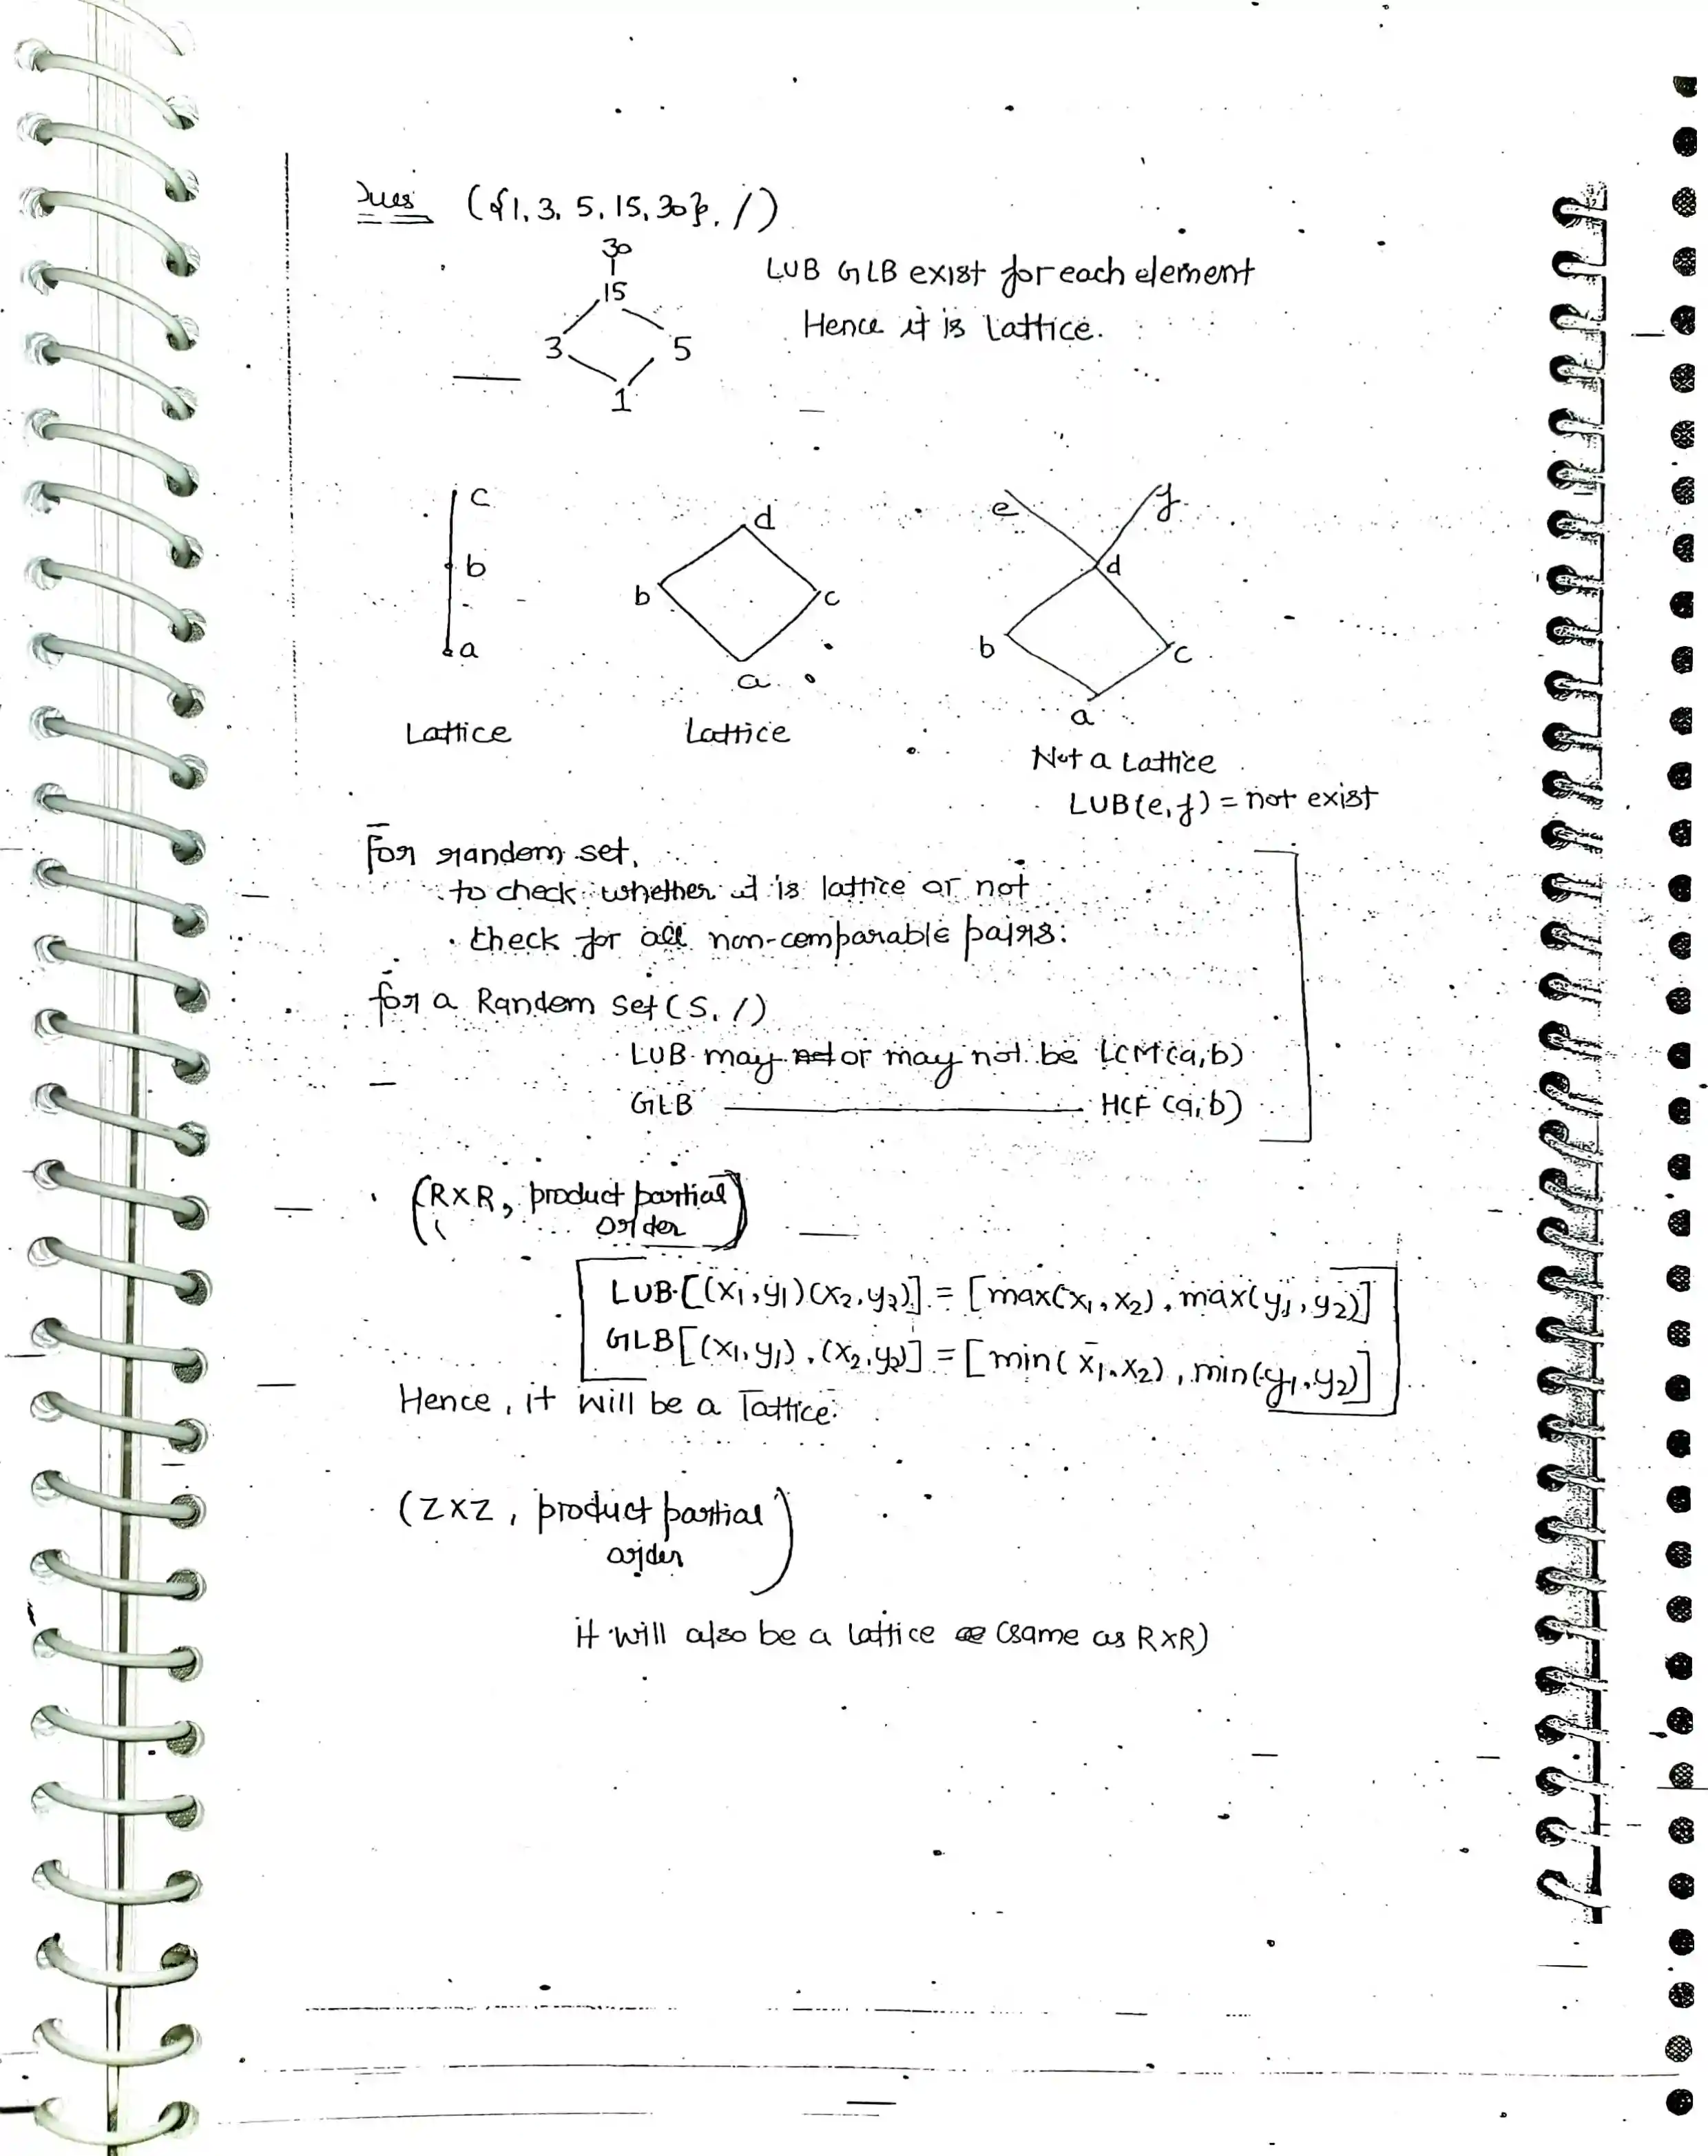 Ques ({1, 3, 5, 15, 30}, /)
30
15
3 5
1
LUB GLB exist for each element
Hence it is Lattice.
c
b
a
Lattice
d
b c
a
Lattice
e f
d
b c
a
Not a Lattice
LUB(e,f) = not exist
For random set,
to check whether it is lattice or not
· check for all non-comparable pairs:
for a Random Set (S, /)
LUB may or may not be LCM(a,b)
GLB ———— HCF (a,b)
· (R×R, product partial
order)
LUB[(x₁,y₁)(x₂,y₂)] = [max(x₁,x₂), max(y₁,y₂)]
GLB[(x₁,y₁),(x₂,y₂)] = [min(x₁,x₂), min(y₁,y₂)]
Hence, it will be a lattice.
· (Z×Z, product partial
order)
it will also be a lattice (same as R×R)